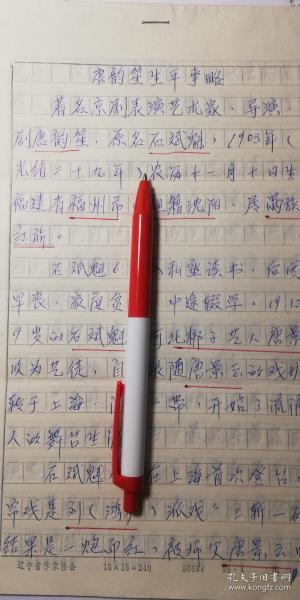 唐韵笙生平事略
著名京剧表演艺术家、导演、
剧唐韵笙,原名石斌魁,1903年(
光绪二十九年)农历十二月十日生
福建省福州市,祖籍沈阳,属满族
红旗。
石斌魁6 入私塾读书,后因
早丧,家庭贫 中途缀学。1912
9岁的石斌魁 河北梆子艺人唐景
收为艺徒,自 跟随唐景云的戏班
转于上海、 一带,开始了流浪
人的舞台生
石斌魁 在上海首次登台,
常戏是刘(鸿) 派戏"三斩一
结果是一炮而红,被师父唐景云
辽宁省作家协会 15×16=240
孔夫子旧书网